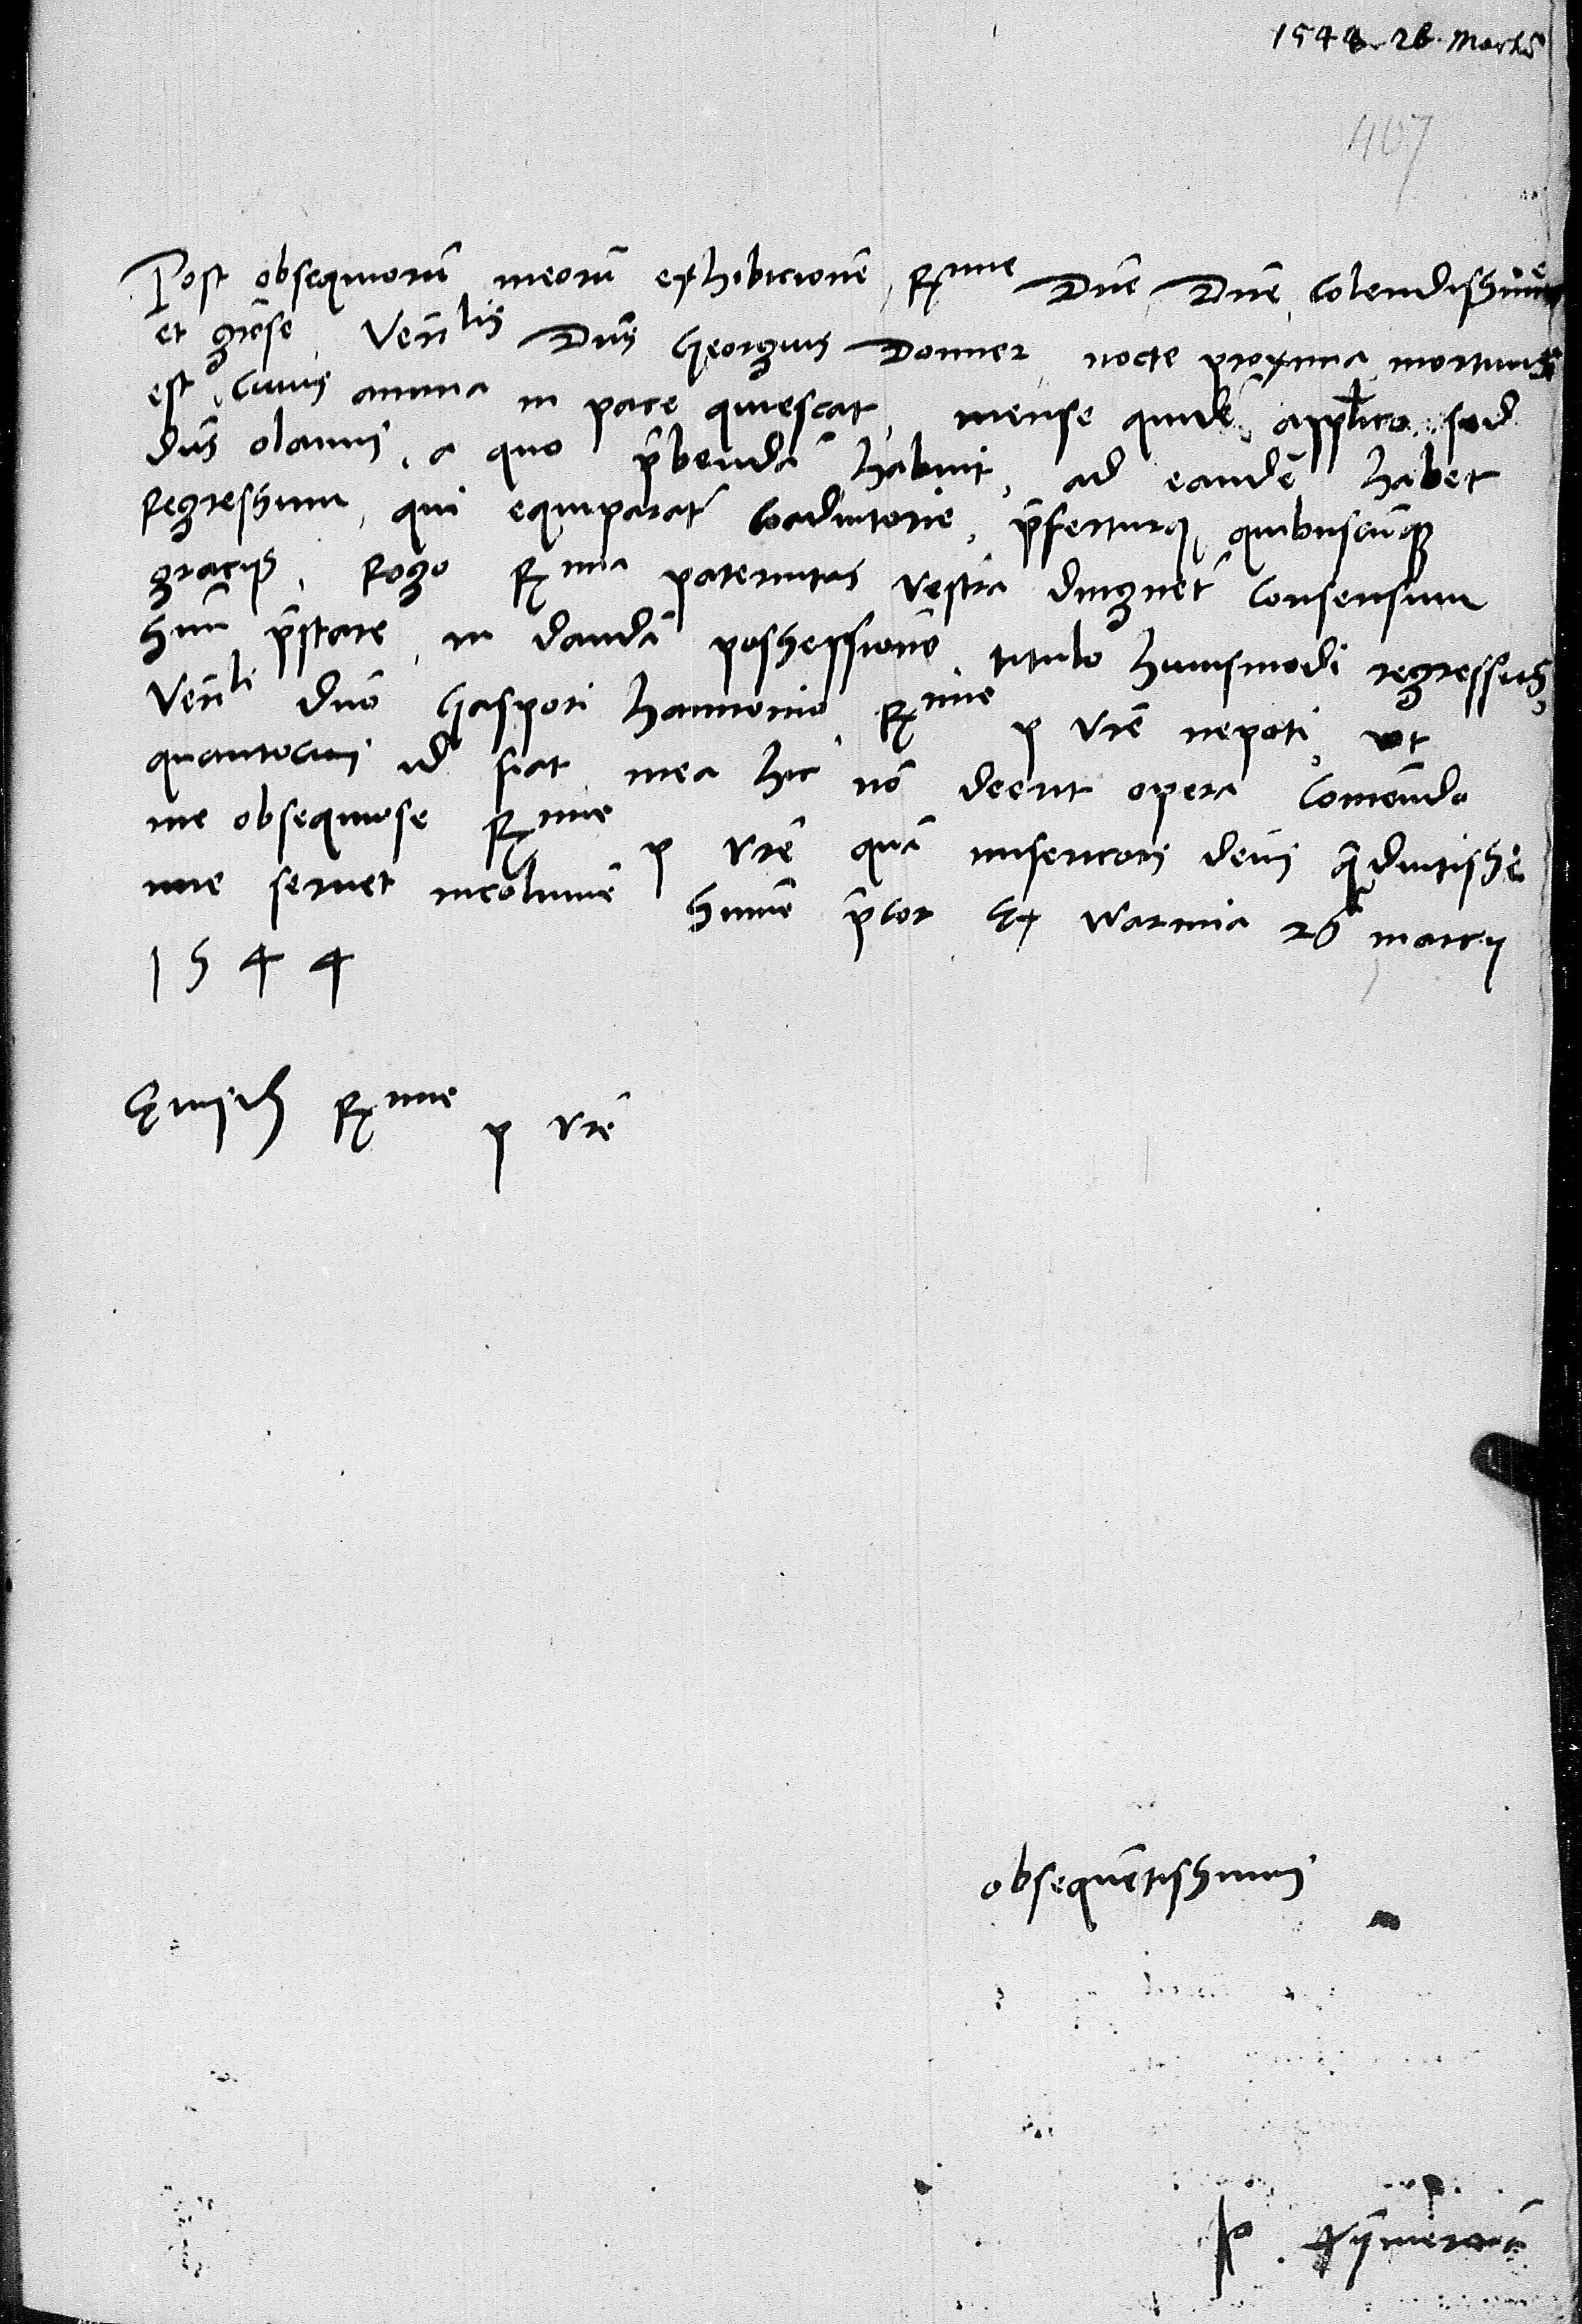 1544 26 Martii
467
Post obsequiorū meorū exhibicionē, Rxme Dne, Dne, Colendissime
et grōse, Venlis Dns Georgius Donner, nocte proxima mortuus
est, cuius anima in pace quiescat, mense quidē applico. sed
dns olaus, a quo p̄bendā habuit, ad eandē habet
Regressum, qui equiparat̄ Coadiutorie, p̄ferturq, quibuscūq
graciis, Rogo Rxma paternitas vestra dingnet̄ Consensum
suū p̄stare, in dandā possessionē, titulo huiusmodi regressus,
Venli dno Caspari hannovio Rxme p vrē nepoti, ut
quantocius id fiat mea hic nō deerit opera Comēdo
me obsequiose Rxme p vrē quā misericors deus q̄diutissi
me seruet incolumē summē p̄cor Ex warmia 26 marcii
1544
Eiusdē Rxme p vrē
obsequētissimus